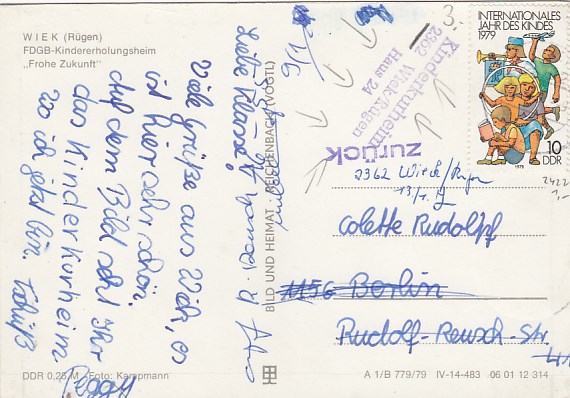 WIEK (Rügen)
FDGB-Kindererholungsheim
„Frohe Zukunft"
Viele Grüße aus Wiek, es
ist hier sehr schön.
Auf dem Bild seht ihr
das Kinderkurheim
wo ich jetzt bin.
Peggy
DDR 0,25 M Foto: Kampmann
BILD UND HEIMAT REICHENBACH (VOGTL)
3.
INTERNATIONALES
JAHR DES KINDES
1979
10
DDR
1979
Kinderkurheim
2362 Wiek/Rügen
Haus 24
zurück
2362 Wieck/Rügen
Colette Rudolpf
1156 Berlin
Rudolf-Reusch-Str.
A 1/B 779/79 IV-14-483 06 01 12 314